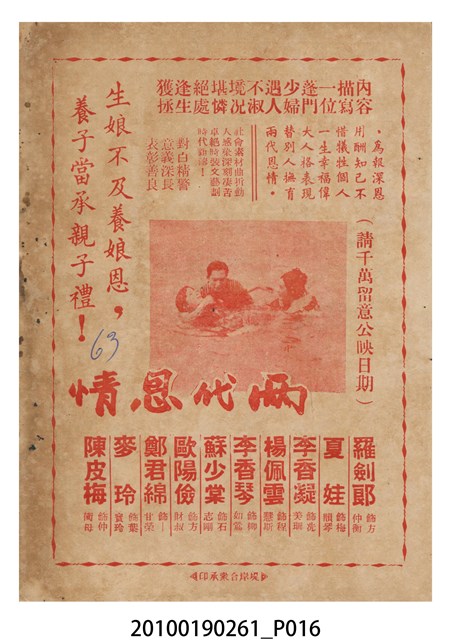 內容描寫一位
蓬門少婦遇人
不淑境況堪憐
絕處逢生獲拯
，為報深恩
用酬知己不
惜犧牲個人
一生幸福偉
大人格表現
替別人撫育
兩代恩情。
社會素材曲折動
人感受深刻淒苦
卓絕時裝文藝劇
時代新潮！
對白精警
意義深長
表彰善良
生娘不及養娘恩，
養子當承親子禮！
（請千萬留意公映日期）
63
兩代恩情
羅劍郎 飾方仲衡
夏娃 飾梅
李香凝 飾
楊佩雲 飾程
李香琴 飾柳如
蘇少棠 飾石志剛
歐陽儉 飾方財叔
鄭君綿 飾甘榮
麥玲 飾葉寶玲
陳皮梅 飾仲衡母
香港坡岸合衆承印
20100190261_P016